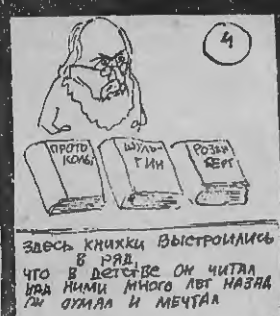 4
ПРОТО
КОЛЫ
ШУЛЬ
ГИН
РОЗЕН
БЕРГ
ЗДЕСЬ КНИЖКИ ВЫСТРОИЛИСЬ
В РЯД,
ЧТО В ДЕТСТВЕ ОН ЧИТАЛ
НАД НИМИ МНОГО ЛЕТ НАЗАД
ОН ДУМАЛ И МЕЧТАЛ